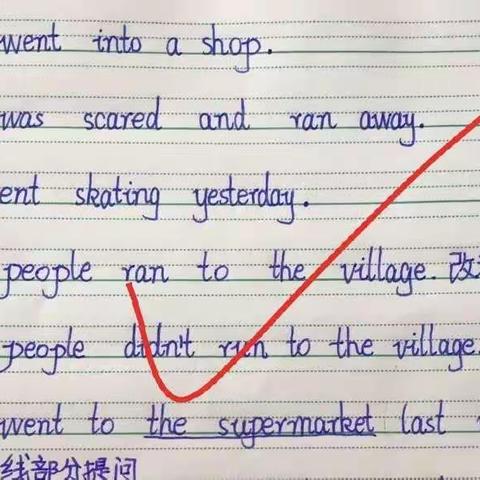 went into a shop.
was scared and ran away.
ent skating yesterday.
people ran to the village. 改
people didn't run to the village.
went to the supermarket last
线部分提问